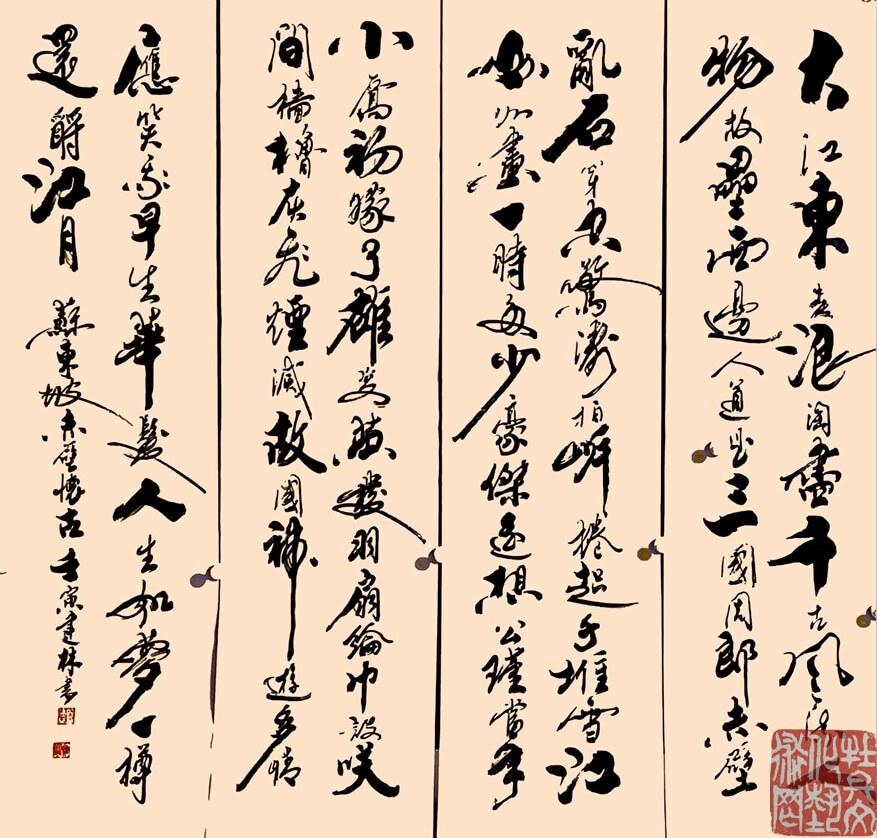 大江東去浪淘盡千古風流人
物故壘西邊人道是三國周郎赤壁
亂石穿空驚濤拍岸捲起千堆雪江
山如畫一時多少豪傑遙想公瑾當年
小喬初嫁了雄姿英發羽扇綸巾談笑
間檣櫓灰飛煙滅故國神遊多情
應笑我早生華髮人生如夢一樽
還酹江月 蘇東坡赤壁懷古 壬寅建林書